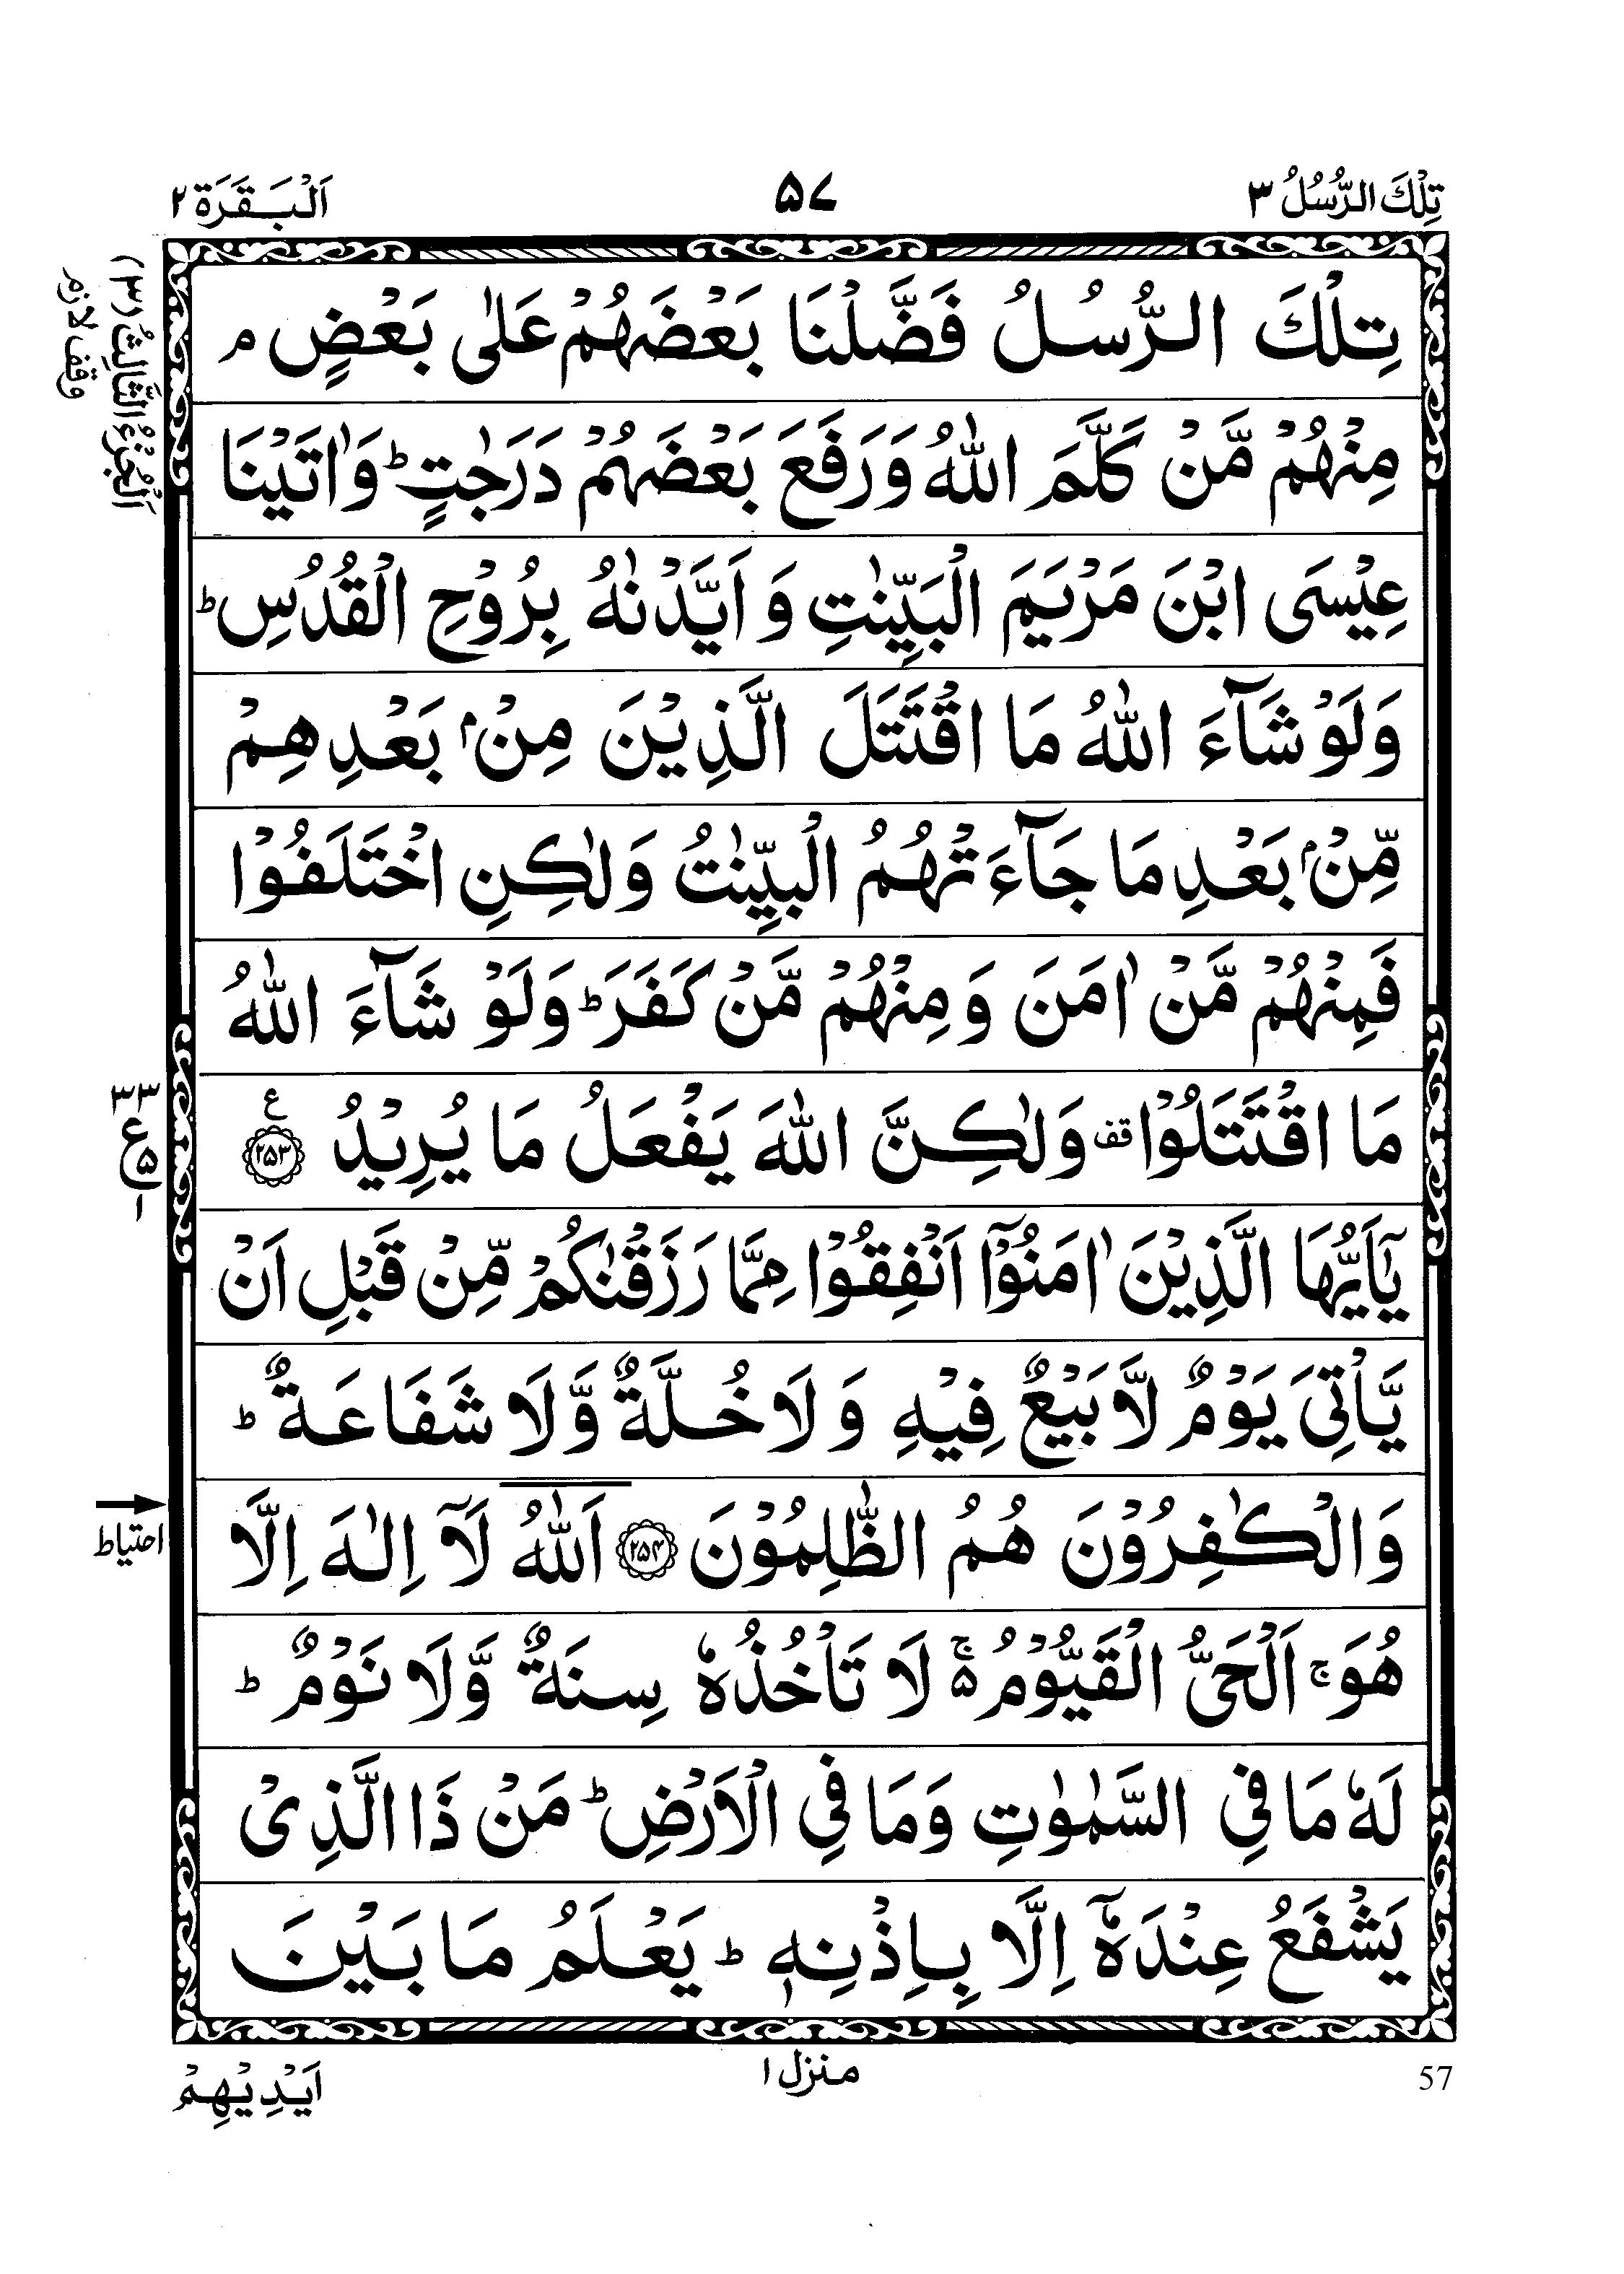 تِلْكَ الرُّسُلُ ٣
٥٧
اَلْبَقَرَة ٢
اَلْجُزْءُ الثَّالِثُ (٣)
وقف لازم
تِلْكَ الرُّسُلُ فَضَّلْنَا بَعْضَهُمْ عَلٰى بَعْضٍ ۘ
مِنْهُمْ مَّنْ كَلَّمَ اللّٰهُ وَرَفَعَ بَعْضَهُمْ دَرَجٰتٍ ؕ وَاٰتَيْنَا
عِيْسَى ابْنَ مَرْيَمَ الْبَيِّنٰتِ وَ اَيَّدْنٰهُ بِرُوْحِ الْقُدُسِ ؕ
وَلَوْ شَآءَ اللّٰهُ مَا اقْتَتَلَ الَّذِيْنَ مِنْۢ بَعْدِهِمْ
مِّنْۢ بَعْدِ مَا جَآءَتْهُمُ الْبَيِّنٰتُ وَلٰكِنِ اخْتَلَفُوْا
فَمِنْهُمْ مَّنْ اٰمَنَ وَ مِنْهُمْ مَّنْ كَفَرَ ؕ وَلَوْ شَآءَ اللّٰهُ
مَا اقْتَتَلُوْا قف وَلٰكِنَّ اللّٰهَ يَفْعَلُ مَا يُرِيْدُ ع ٢٥٣
٣٣
ع ٥
١
يٰۤاَيُّهَا الَّذِيْنَ اٰمَنُوْۤا اَنْفِقُوْا مِمَّا رَزَقْنٰكُمْ مِّنْ قَبْلِ اَنْ
يَّاْتِىَ يَوْمٌ لَّا بَيْعٌ فِيْهِ وَ لَا خُلَّةٌ وَّلَا شَفَاعَةٌ ؕ
وَالْكٰفِرُوْنَ هُمُ الظّٰلِمُوْنَ ٢٥٤ اَللّٰهُ لَاۤ اِلٰهَ اِلَّا
احتياط
هُوَ ۚ اَلْحَىُّ الْقَيُّوْمُ ۵ۚ لَا تَاْخُذُهٗ سِنَةٌ وَّلَا نَوْمٌ ؕ
لَهٗ مَا فِى السَّمٰوٰتِ وَمَا فِى الْاَرْضِ ؕ مَنْ ذَا الَّذِىْ
يَشْفَعُ عِنْدَهٗۤ اِلَّا بِاِذْنِهٖ ؕ يَعْلَمُ مَا بَيْنَ
اَيْدِيْهِمْ
منزل ١
57